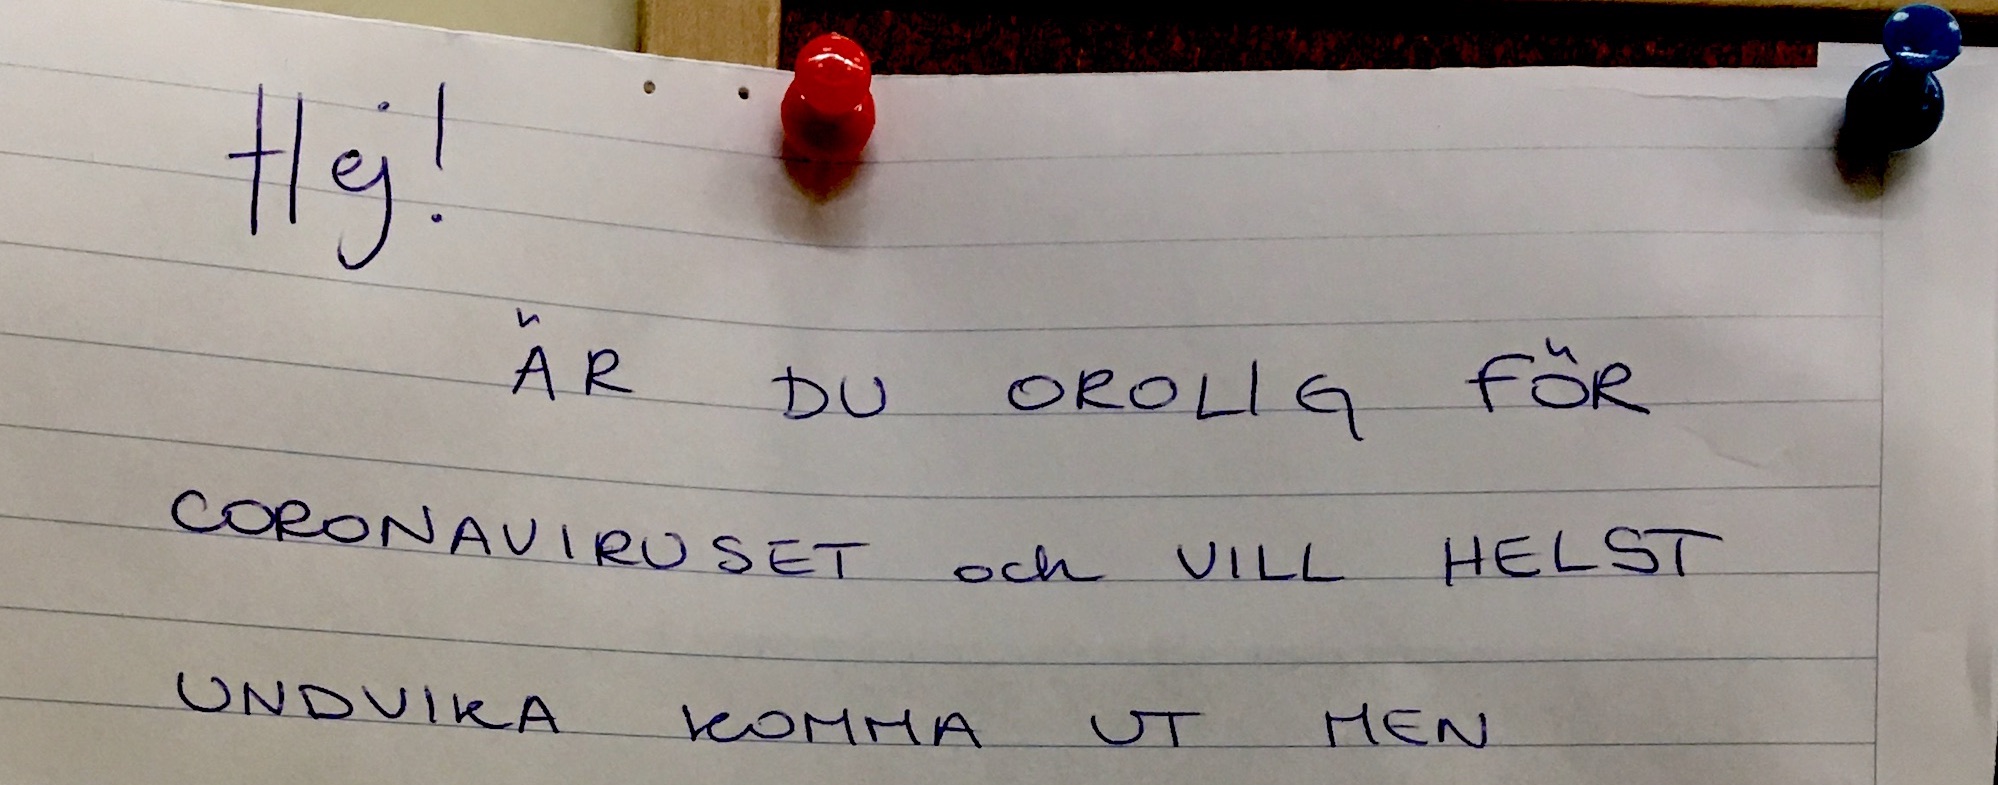 Hej!
ÄR DU OROLIG FÖR
CORONAVIRUSET och VILL HELST
UNDVIKA KOMMA UT MEN